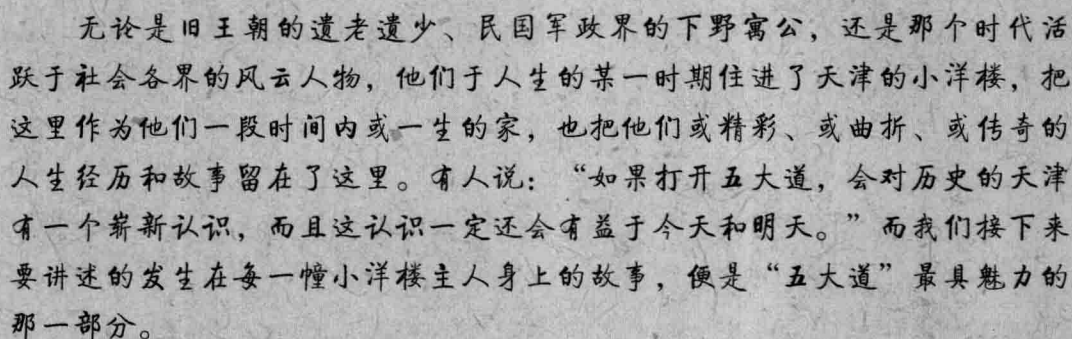 无论是旧王朝的遗老遗少、民国军政界的下野寓公，还是那个时代活
跃于社会各界的风云人物，他们于人生的某一时期住进了天津的小洋楼，把
这里作为他们一段时间内或一生的家，也把他们或精彩、或曲折、或传奇的
人生经历和故事留在了这里。有人说：“如果打开五大道，会对历史的天津
有一个崭新认识，而且这认识一定还会有益于今天和明天。”而我们接下来
要讲述的发生在每一幢小洋楼主人身上的故事，便是“五大道”最具魅力的
那一部分。